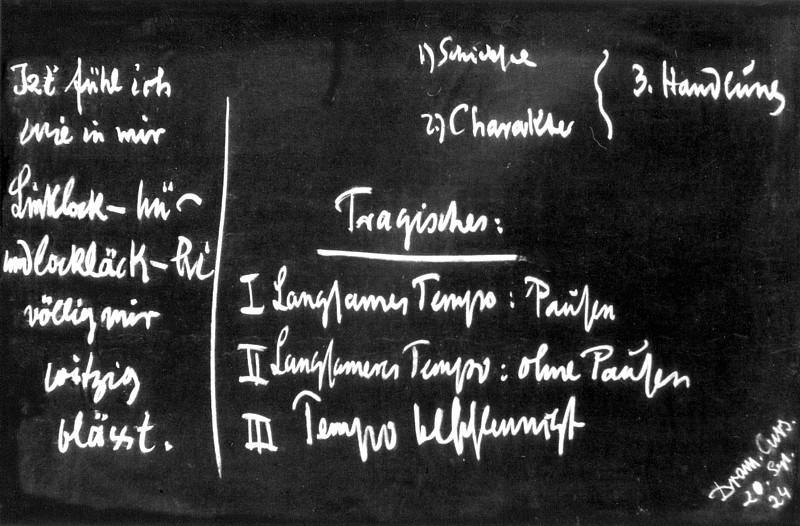 Izt fühl ich
wie in mir
Linklock-hü
und lockläck-hi
völlig mir
witzig
blässt.
1) Schicksal
2.) Charakter
3. Handlung
Tragisches:
I Langsames Tempo: Pausen
II Langsameres Tempo: ohne Pausen
III Tempo beschleunigt
Dram. Curs.
20. Sep.
24